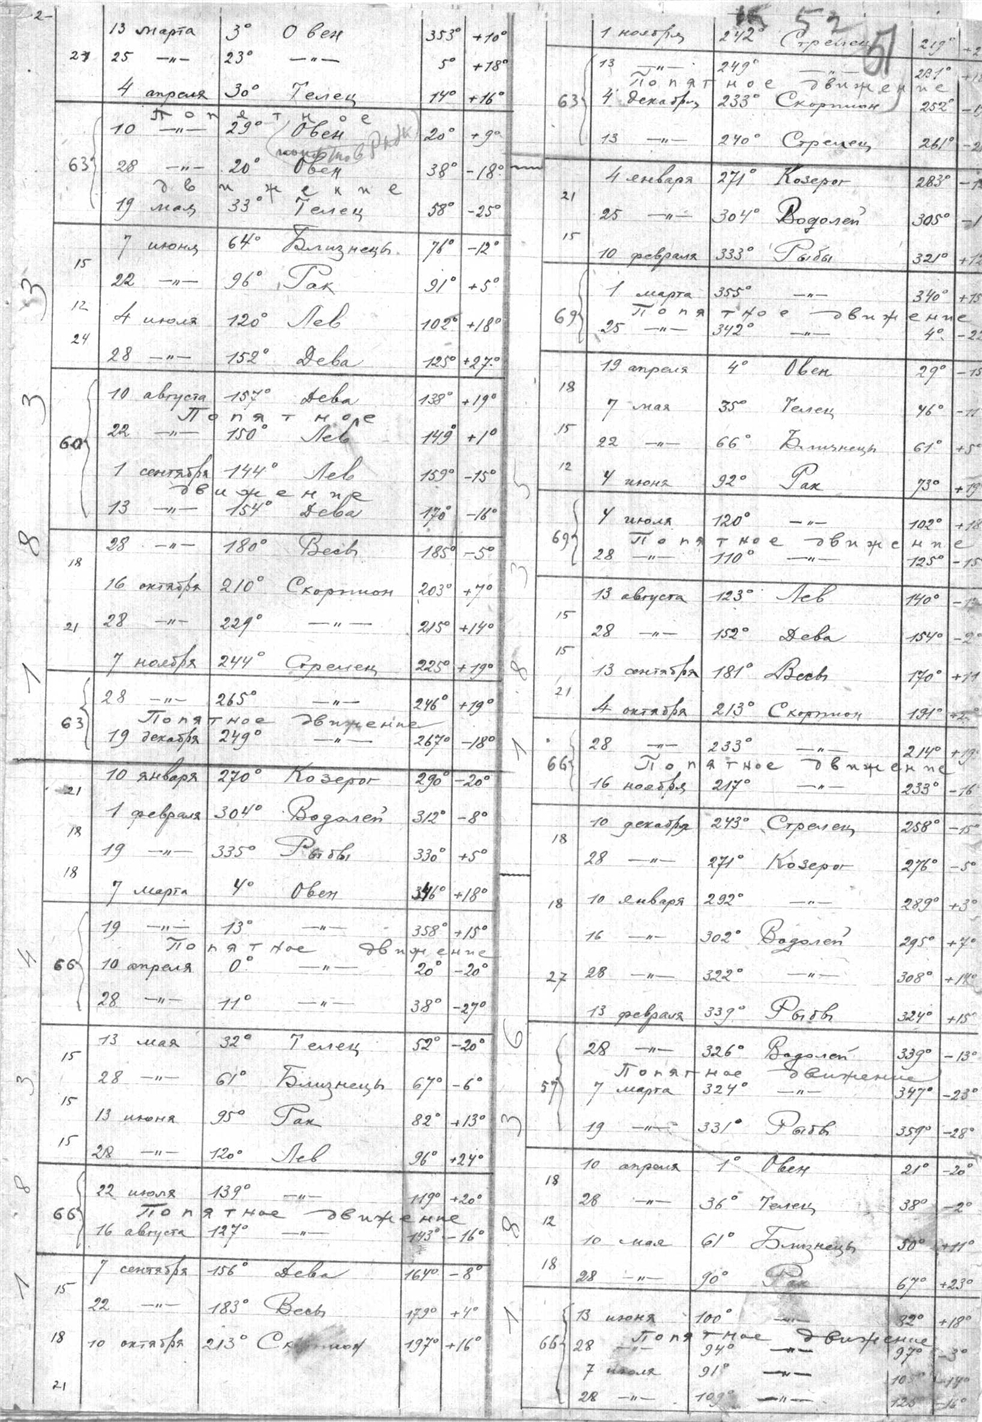 2-
13 марта 3° Овен 353° +10°
27 25 -"- 23° -"- 5° +18°
4 апреля 30° Телец 14° +16°
Попятное
10 -"- 29° Овен 20° +9°
63 28 -"- 20° Овен 38° -18°
движение
19 мая 33° Телец 58° -25°
7 июня 64° Близнецы 76° -12°
15
22 -"- 96° Рак 91° +5°
12
4 июля 120° Лев 102° +18°
24
28 -"- 152° Дева 125° +27°
1833
10 августа 157° Дева 138° +19°
Попятное
60 22 -"- 150° Лев 149° +1°
1 сентября 144° Лев 159° -15°
движение
13 -"- 154° Дева 170° -16°
28 -"- 180° Весы 185° -5°
18
16 октября 210° Скорпион 203° +7°
21 28 -"- 229° -"- 215° +14°
7 ноября 244° Стрелец 225° +19°
28 -"- 265° -"- 246° +19°
63 Попятное движение
19 декабря 249° -"- 267° -18°
10 января 270° Козерог 290° -20°
21
1 февраля 304° Водолей 312° -8°
18
19 -"- 335° Рыбы 330° +5°
18
7 марта 4° Овен 346° +18°
19 -"- 13° -"- 358° +15°
Попятное движение
66 10 апреля 0° -"- 20° -20°
28 -"- 11° -"- 38° -27°
1834
13 мая 32° Телец 52° -20°
15
28 -"- 61° Близнецы 67° -6°
15
13 июня 95° Рак 82° +13°
15
28 -"- 120° Лев 96° +24°
22 июля 139° -"- 119° +20°
66 Попятное движение
16 августа 127° -"- 143° -16°
7 сентября 156° Дева 164° -8°
15
22 -"- 183° Весы 179° +4°
18
10 октября 213° Скорпион 197° +16°
21
52
51
1 ноября 242° Стрелец 219°
13 -"- 249° -"- 231°
Попятное движение
63 4 декабря 233° Скорпион 252°
13 -"- 240° Стрелец 261°
4 января 271° Козерог 283°
21
25 -"- 304° Водолей 305°
15
10 февраля 333° Рыбы 321°
1 марта 355° -"- 340°
69 Попятное движение
25 -"- 342° -"- 4°
19 апреля 4° Овен 29°
18
7 мая 35° Телец 46°
15
22 -"- 66° Близнецы 61° +5°
12
4 июня 92° Рак 73°
1835
4 июля 120° -"- 102°
69 Попятное движение
28 -"- 110° -"- 125°
13 августа 123° Лев 140°
15
28 -"- 152° Дева 154° -2°
15
13 сентября 181° Весы 170°
21
4 октября 213° Скорпион 191°
28 -"- 233° -"- 214°
66 Попятное движение
16 ноября 217° -"- 233° -16
10 декабря 243° Стрелец 258° -15°
18
28 -"- 271° Козерог 276° -5°
18 10 января 292° -"- 289° +3°
16 -"- 302° Водолей 295° +7°
27 28 -"- 322° -"- 308°
13 февраля 339° Рыбы 324° +15
28 -"- 326° Водолей 339° -13°
Попятное движение
57 7 марта 324° -"- 347° -23°
19 -"- 331° Рыбы 359° -28°
1836
10 апреля 1° Овен 21° -20°
18
28 -"- 36° Телец 38° -2°
12
10 мая 61° Близнецы 50° +11°
18
28 -"- 90° Рак 67° +23°
13 июня 100° -"- 82° +18°
Попятное движение
66 28 -"- 94° -"- 97° -3°
7 июля 91° -"-
28 -"- 109° -"-